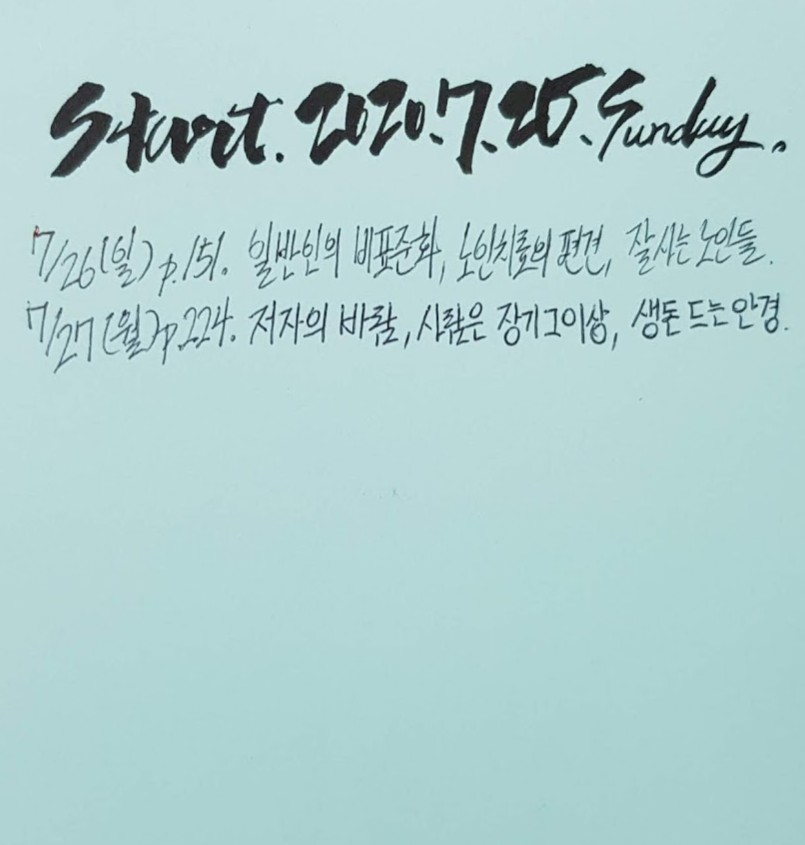 Start. 2020.7.25. Sunday.
7/26(일) p.151. 일반인의 비표준화, 노인치료의 편견, 잘사는 노인들.
7/27(월) p.224. 저자의 바람, 사람은 장기 그이상, 생돈 드는 안경.